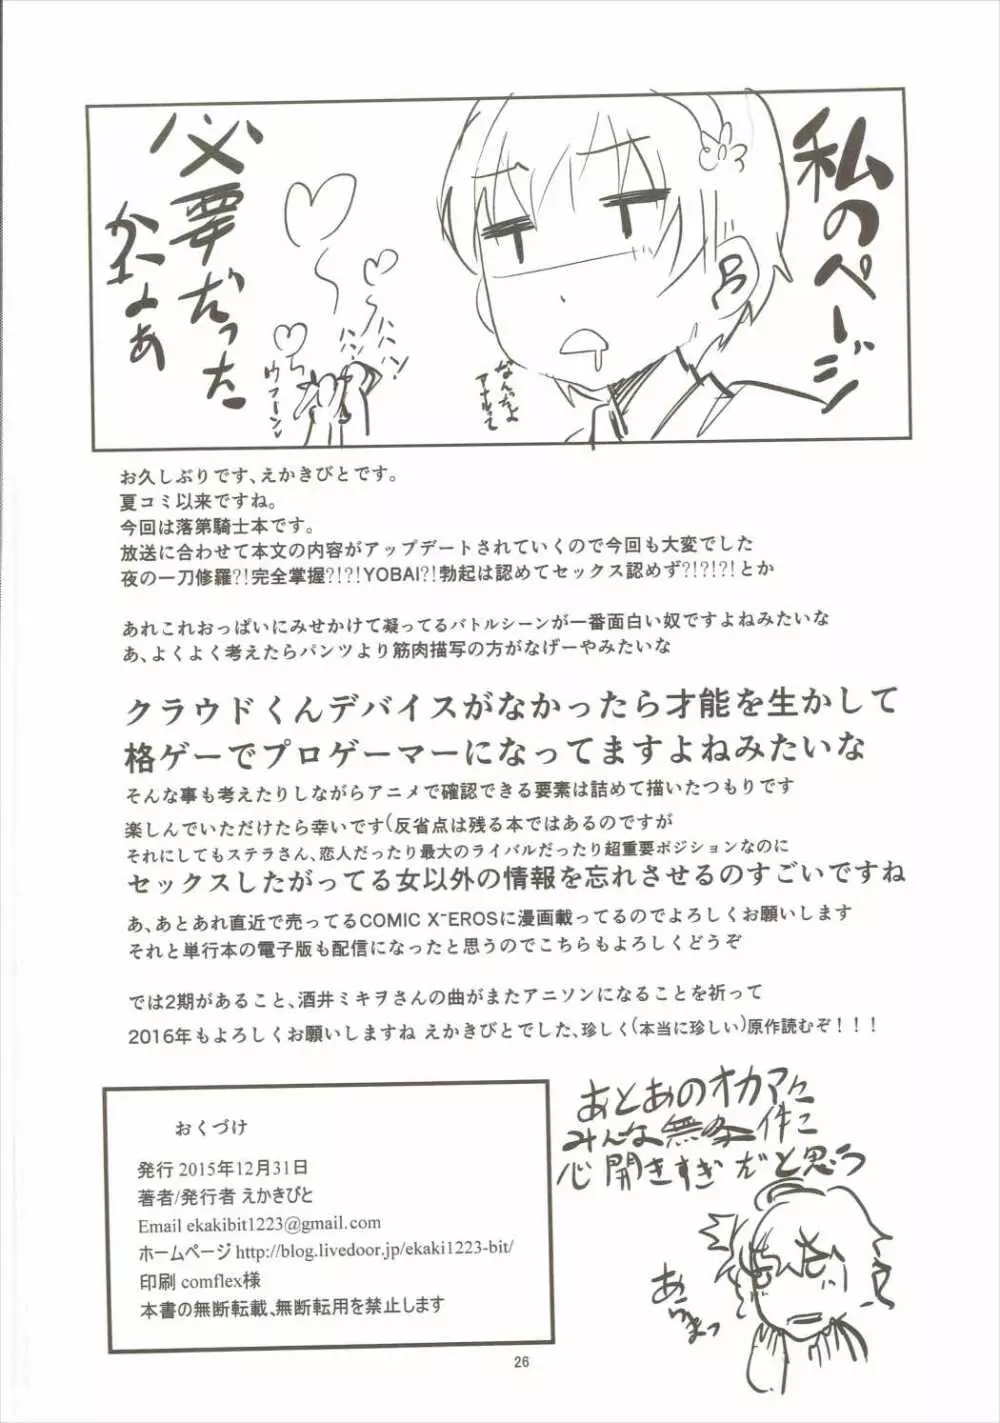 私のページ
必要だった
かなぁ
なんだよ
アナルって
ハン!
ハン!
ウフーン
お久しぶりです、えかきびとです。
夏コミ以来ですね。
今回は落第騎士本です。
放送に合わせて本文の内容がアップデートされていくので今回も大変でした
夜の一刀修羅?!完全掌握?!?!YOBAI?!勃起は認めてセックス認めず?!?!?!とか
あれこれおっぱいにみせかけて凝ってるバトルシーンが一番面白い奴ですよねみたいな
あ、よくよく考えたらパンツより筋肉描写の方がなげーやみたいな
クラウドくんデバイスがなかったら才能を生かして
格ゲーでプロゲーマーになってますよねみたいな
そんな事も考えたりしながらアニメで確認できる要素は詰めて描いたつもりです
楽しんでいただけたら幸いです(反省点は残る本ではあるのですが
それにしてもステラさん、恋人だったり最大のライバルだったり超重要ポジションなのに
セックスしたがってる女以外の情報を忘れさせるのすごいですね
あ、あとあれ直近で売ってるCOMIC X-EROSに漫画載ってるのでよろしくお願いします
それと単行本の電子版も配信になったと思うのでこちらもよろしくどうぞ
では2期があること、酒井ミキヲさんの曲がまたアニソンになることを祈って
2016年もよろしくお願いしますね えかきびとでした、珍しく(本当に珍しい)原作読むぞ！！！
あとあのオカマに
みんな無条件に
心開きすぎだと思う
あらまっ
おくづけ
発行 2015年12月31日
著者/発行者 えかきびと
Email ekakibit1223@gmail.com
ホームページ http://blog.livedoor.jp/ekaki1223-bit/
印刷 comflex様
本書の無断転載、無断転用を禁止します
26